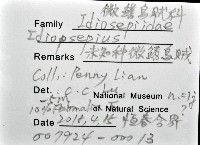 微鰭烏賊科
Family Idiosepiidae
Idiosepius
Remarks 未知種微鰭烏賊
Coll.: Penny Lian
Det. C.C. Lu
National Museum
of Natural Science
10% Formalin
Date 2018.4.15
007924-00013